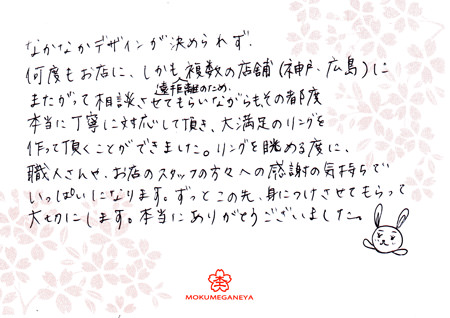 なかなかデザインが決められず.
何度もお店に、しかも複数の店舗(神戸、広島)に
遠距離のため、
またがって相談させてもらいながらも、その都度
本当に丁寧に対応して頂き、大満足のリングを
作って頂くことができました。リングを眺める度に、
職人さんや、お店のスタッフの方々への感謝の気持ちで
いっぱいになります。ずっとこの先、身につけさせてもらって
大切にします。本当にありがとうございました。
MOKUMEGANEYA